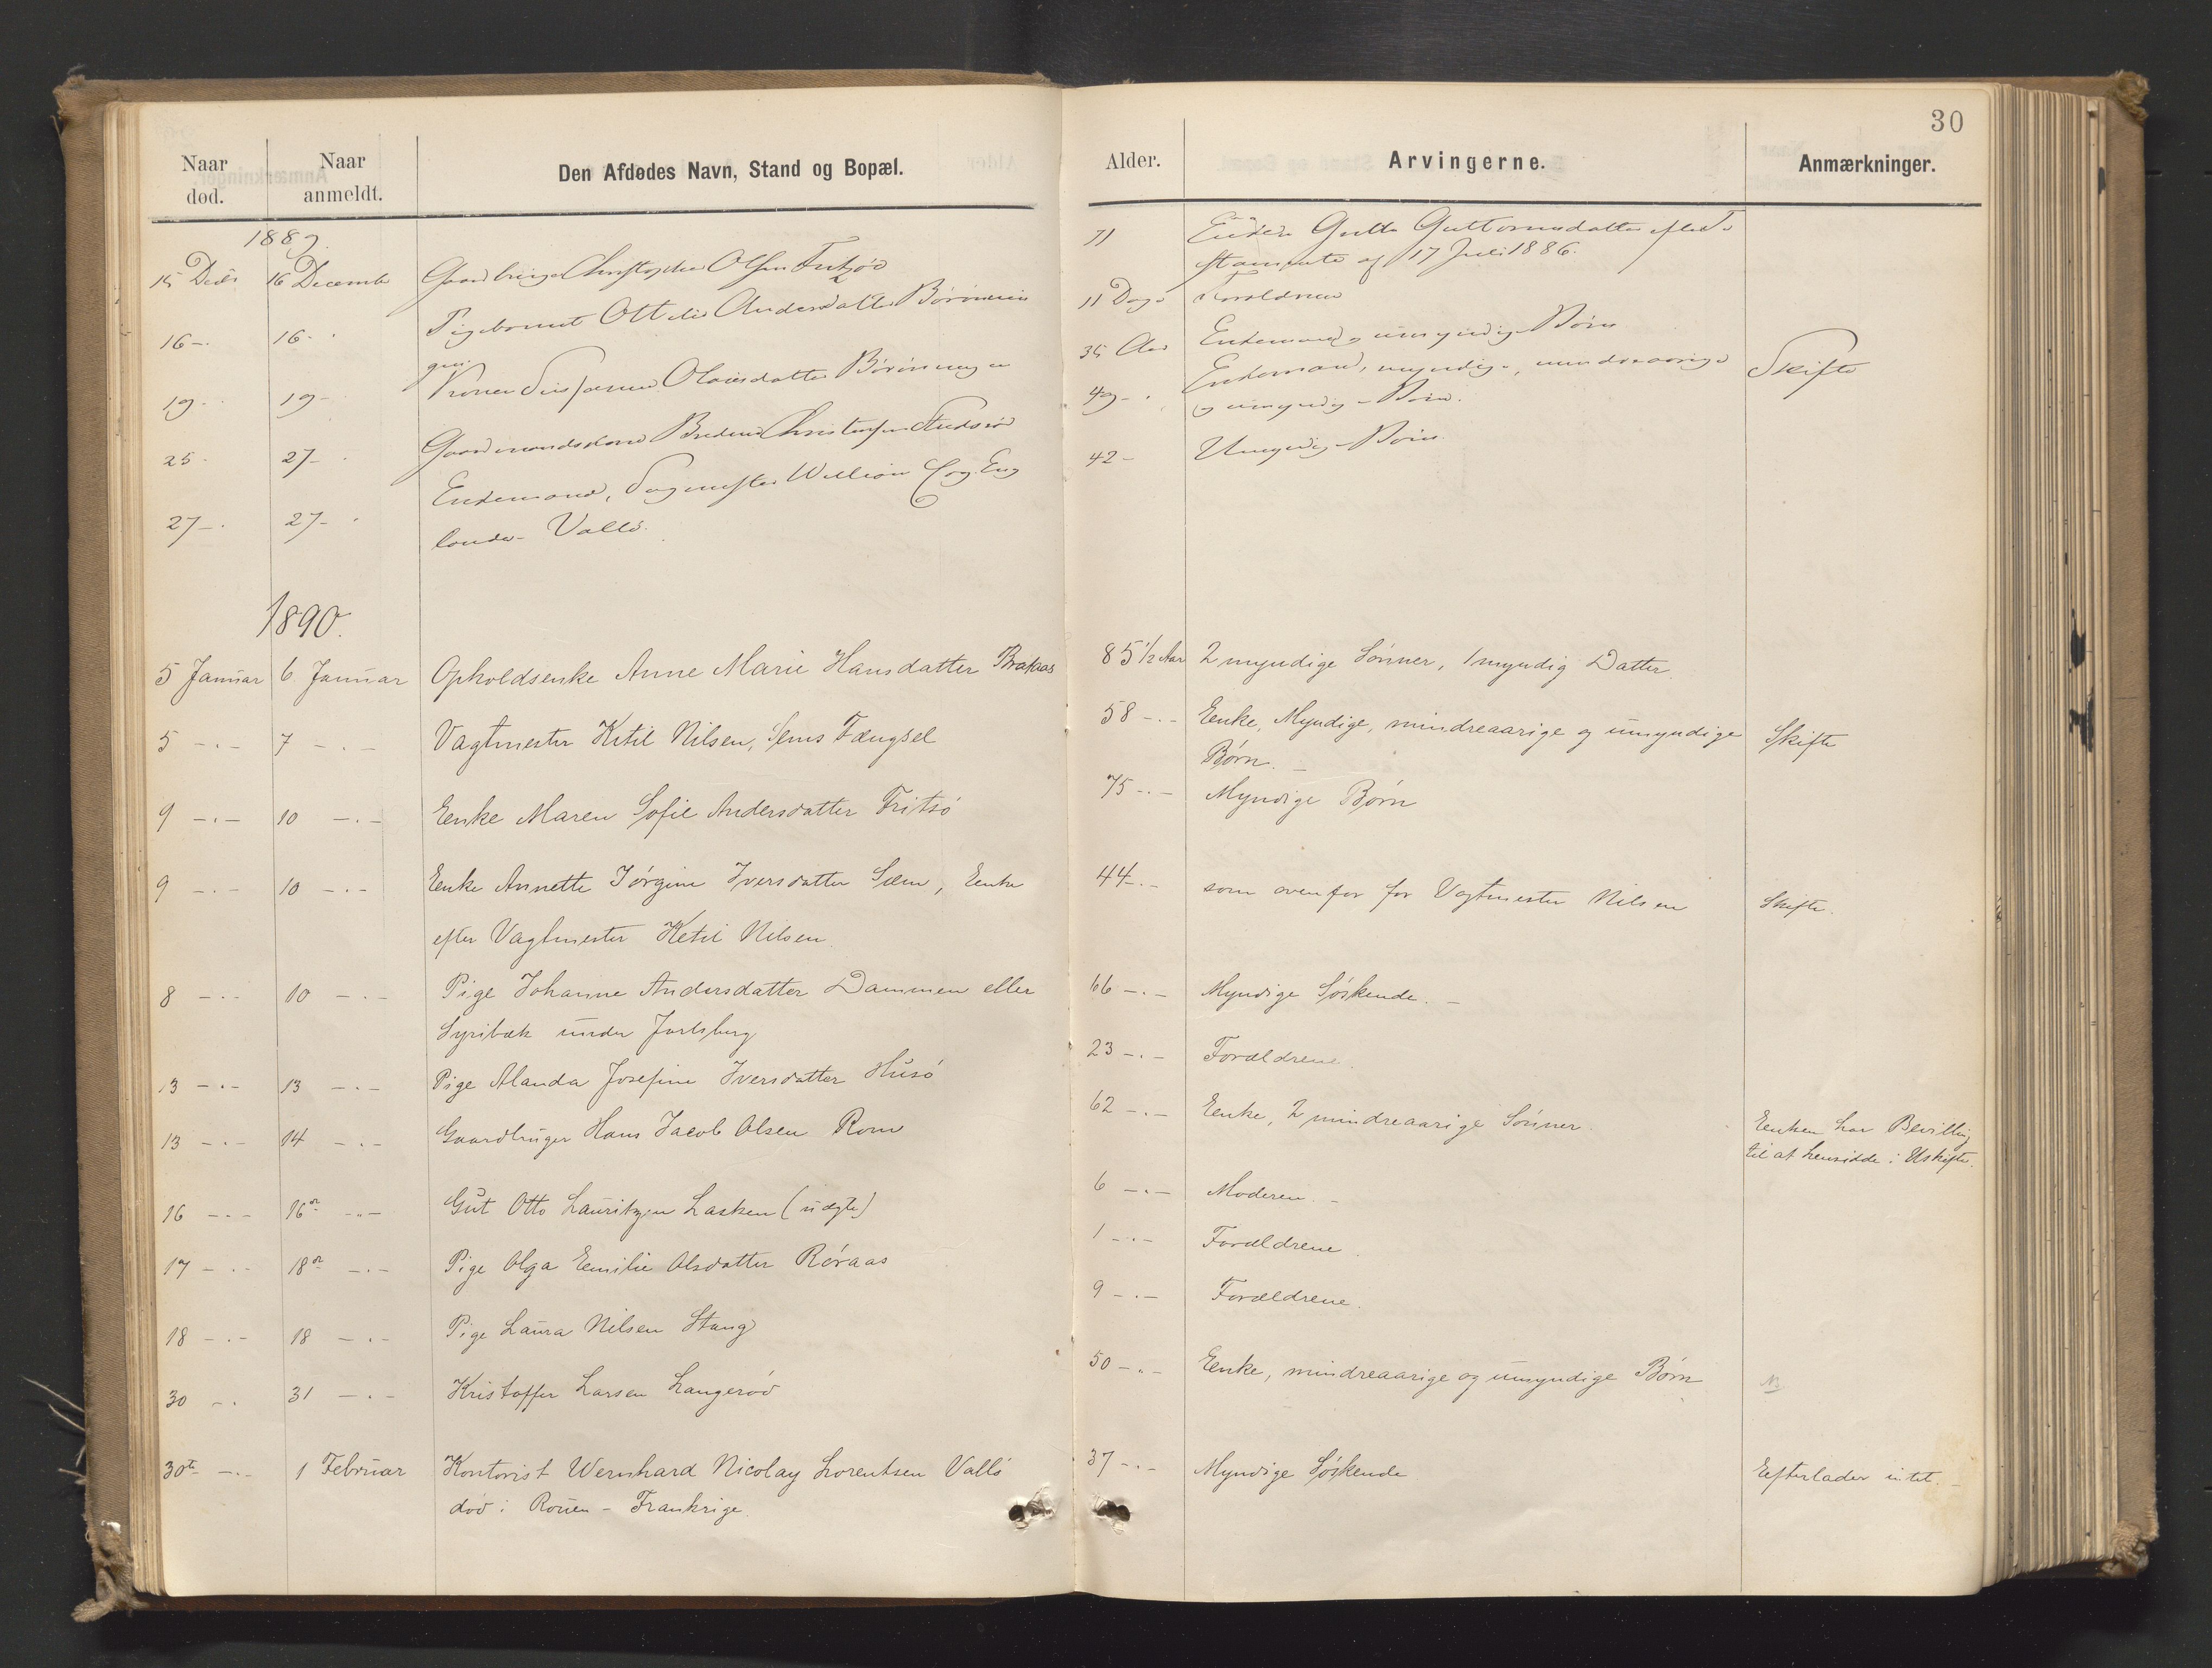 30
Naar død.
Naar anmeldt.
Den Afdødes Navn, Stand og Bopæl.
Alder.
Arvingerne.
Anmærkninger.
1889.
15 Decbr 16 December Gaardbruger Christopher Olsen
71
af 17 Juli 1886.
16 - 16 - Pigebarnet Andersdatter
11 Dage Forældrene
19 - 19 - Konen
35 Aar Enkemand og umyndige Børn
25 - 27 - Gaardmandskone
49 - Enkemand, myndige, mindreaarige
og umyndige Børn.
Skifte
27 - 27 - Enkemand, William Eng
lander Vallø.
42 - Umyndige Børn
1890.
5 Januar 6 Januar Opholdsenke Anne Marie Hansdatter
85 1/2 Aar 2 myndige Sønner, 1 myndig Datter.
5 -.- 7 -.- Vagtmester Ketil Nilsen, Sems Fængsel
58 -.- Enke, Myndige, mindreaarige og umyndige
Børn. -
Skifte
9 -.- 10 -.- Enke Maren Sofie Andersdatter Fritsø
75 -.- Myndige Børn
9 -.- 10 -.- Enke Annette Jørgine Iversdatter Sem, Enke
efter Vagtmester Ketil Nilsen.
44 -.- som ovenfor for Vagtmester Nilsen
Skifte.
8 -.- 10 -.- Pige Johanne Andersdatter Dammen eller
Syribæk under Jarlsberg
66 -.- Myndige Søskende. -
13 -.- 13 -.- Pige Alanda Josefine Iversdatter Husø
23 -.- Forældrene.
13 -.- 14 -.- Gaardbruger Hans Jacob Olsen Rom
62 -.- Enke, 2 mindreaarige Sønner.
Enken har Bevilling
til at hensidde i Uskifte.
16 -.- 16de -.- Gut Otto Lauritzen Lasken (uægte)
6 -.- Moderen. -
17 -.- 18de -.- Pige Olga Emilie Olsdatter Røraas
1 -.- Forældrene.
18 -.- 18 -.- Pige Laura Nilsen Stang
9 -.- Forældrene.
30 -.- 31 -.- Kristoffer Larsen Langerød
50 -.- Enke, mindreaarige og umyndige Børn
30te -.- 1 Februar Kontorist Wernhard Nicolay Lorentsen Vallø
død i Rouen - Frankrige.
37 -.- Myndige Søskende
Efterlader intet. -